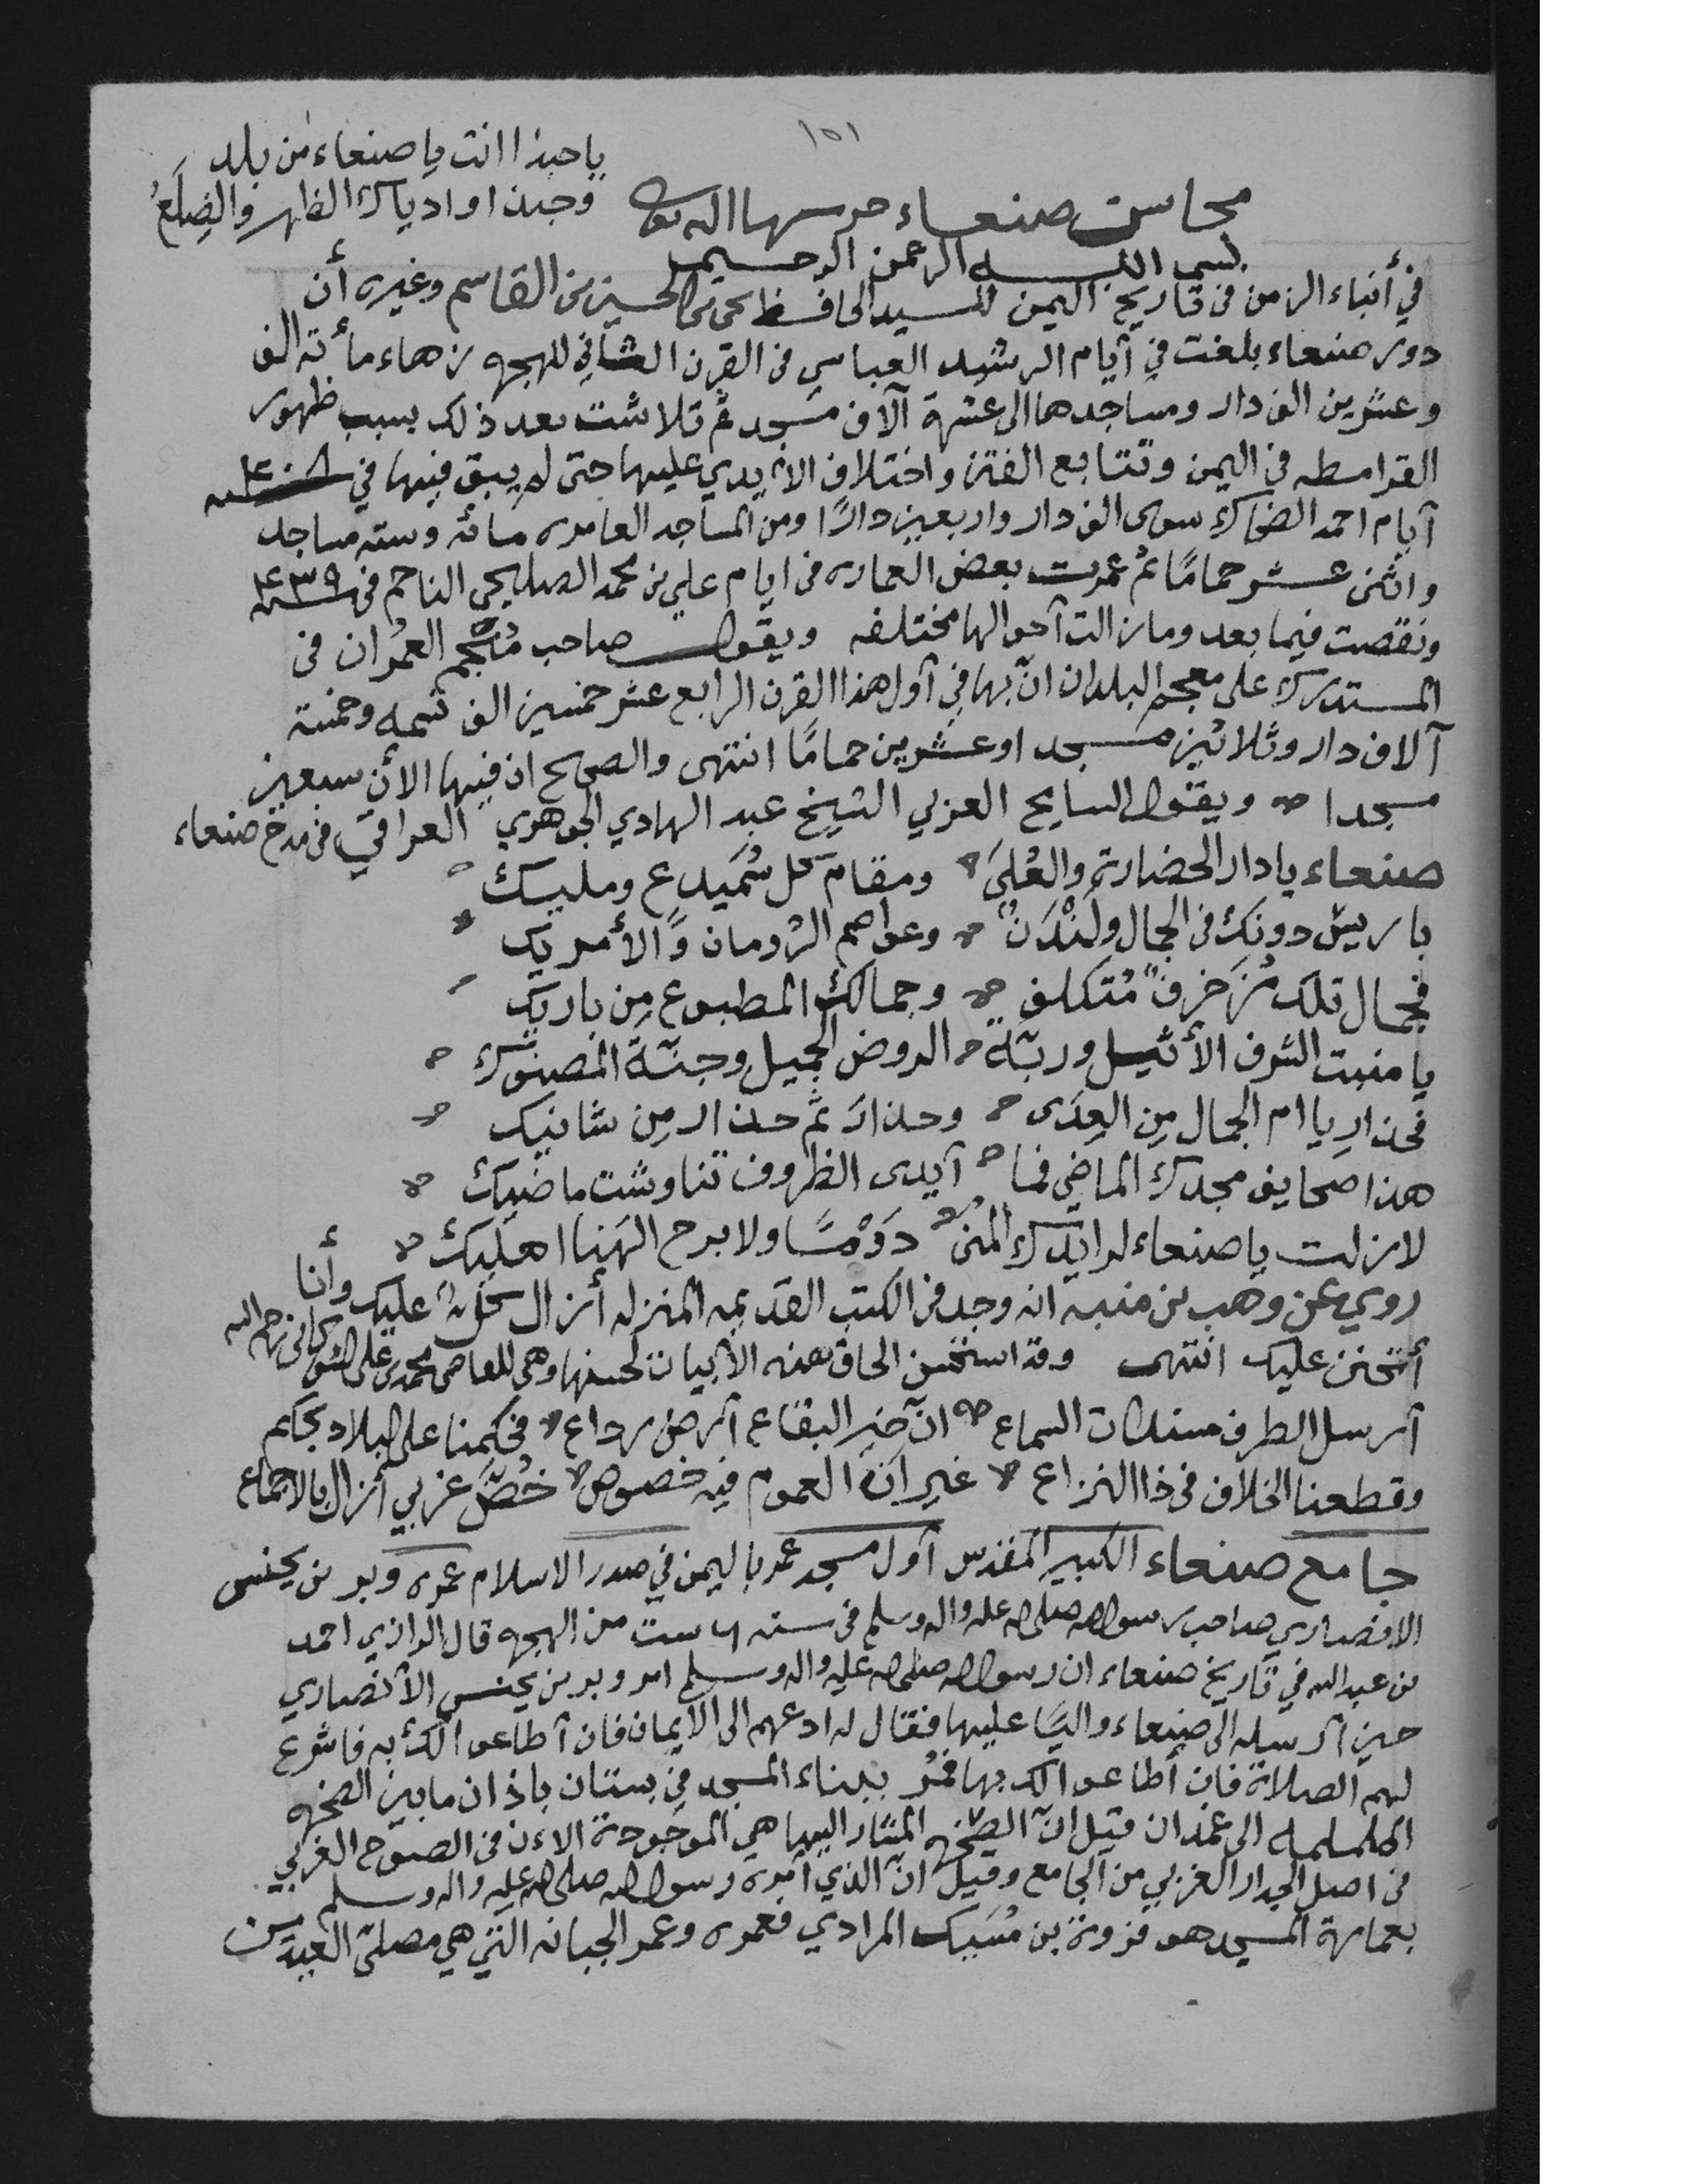 ١٥١
ياحبذا انت يا صنعاء من بلد
وحبذا وادياك الظهر والضلعُ
محاسن صنعاء حرسها الله تعالى
بسم الله الرحمن الرحيم
في أنباء الزمن في تاريخ اليمن للسيد الحافظ يحيى بن الحسين بن القاسم وغيره أن
دور صنعاء بلغت في أيام الرشيد العباسي في القرن الثاني للهجره زهاء مأته الف
وعشرين الف دار ومساجدها الى عشرة آلاف مسجد ثم تلاشت بعد ذلك بسبب ظهور
القرامطه في اليمن وتتابع الفتن واختلاف الأيدي عليها حتى لم يبق فيها في سنة ٤٠٨
آيام احمد الضحاك سوى الف دار واربعين دارًا ومن المساجد العامره مائه وسته مساجد
واثنى عشر حمامًا ثم عمرت بعض العماره في ايام علي بن محمد الصليحي الناجم في سنة ٤٣٩
ونقصت فيما بعد وما زالت آحوالها مختلفه ويقول صاحب مُنجم العمران في
المستدرك على معجم البلدان انّ بها في آول هذا القرن الرابع عشر خمسين الف نسمه وخمسة
آلاف دار وثلاثين مسجدا وعشرين حمامًا انتهى والصحيح ان فيها الأن سبعين
مسجدا ويقول السايح العربي الشيخ عبد الهادي الجوهري العراقي في مدح صنعاء
صنعاء يا دار الحضارة والعُلىَ ومقام كل سُمَيدع ومليك
باريسُ دونكِ في الجمال ولَنْدَنٌ وعواصم الرُومان وَالأمريك
فجمال تلك مُزَخرفٌ مُتكلف وجمالك المطبوع مِن باريك
يا منبت الشرف الأثيل وربّة الروض الجميل وجنّة المصنوك
فحذارِ يا ام الجمال مِن العِدَى وحذارَ ثم حذار مِن شانيك
هذا صحايف مجدك الماضي فما آيدى الظروف تناوشت ماضيك
لازلت يا صنعاء لرايدك المنى دَوْمًا ولا برح الهَنا اهليك
روي عن وهب بن منبه انه وجد في الكتب القديمه المنزله أزال كلٌ عليك وأنا
أتحنن عليك انتهى وقد استحسن الحاق هذه الأبيات لحسنها وهي للقاضي محمد بن علي الشوكاني رحمه الله
آرسل الطرف مستلذات السماع انّ خير البقاع آرض رداع فحكمنا على البلاد بحكم
وقطعنا الخلاف في ذا النزاع غير انّ العموم فيه خصوص خُصَّ غربي آزال بالاجماع
جامع صنعاء الكبير المقدس آول مسجد عمر باليمن في صدر الاسلام عمره وبر بن يحنس
الانصاري صاحب رسول الله صلى الله عليه واله وسلم في سنه ٦ ست من الهجره قال الرازي احمد
بن عبد الله في تاريخ صنعاء ان رسول الله صلى الله عليه واله وسلم امر وبر بن يحنس الأنصاري
حين آرسله الى صنعاء واليًا عليها فقال له ادعهم الى الايمان فان آطاعوا لك به فاشرع
لهم الصلاة فان أطاعوا لك بها فمُر ببناء المسجد في بستان باذان ما بين الصخره
الململمه الى غمدان قيل انّ الصخره المشار اليها هي الموجودة الاءن في الصوح الغربي
في اصل الجدار الغربي من الجامع وقيل انّ الذي آمره رسول الله صلى الله عليه واله وسلم
بعمارة المسجد هو فروة بن مُسَيك المرادي فعمره وعمر الجبانه التي هي مصلىّ العيدين